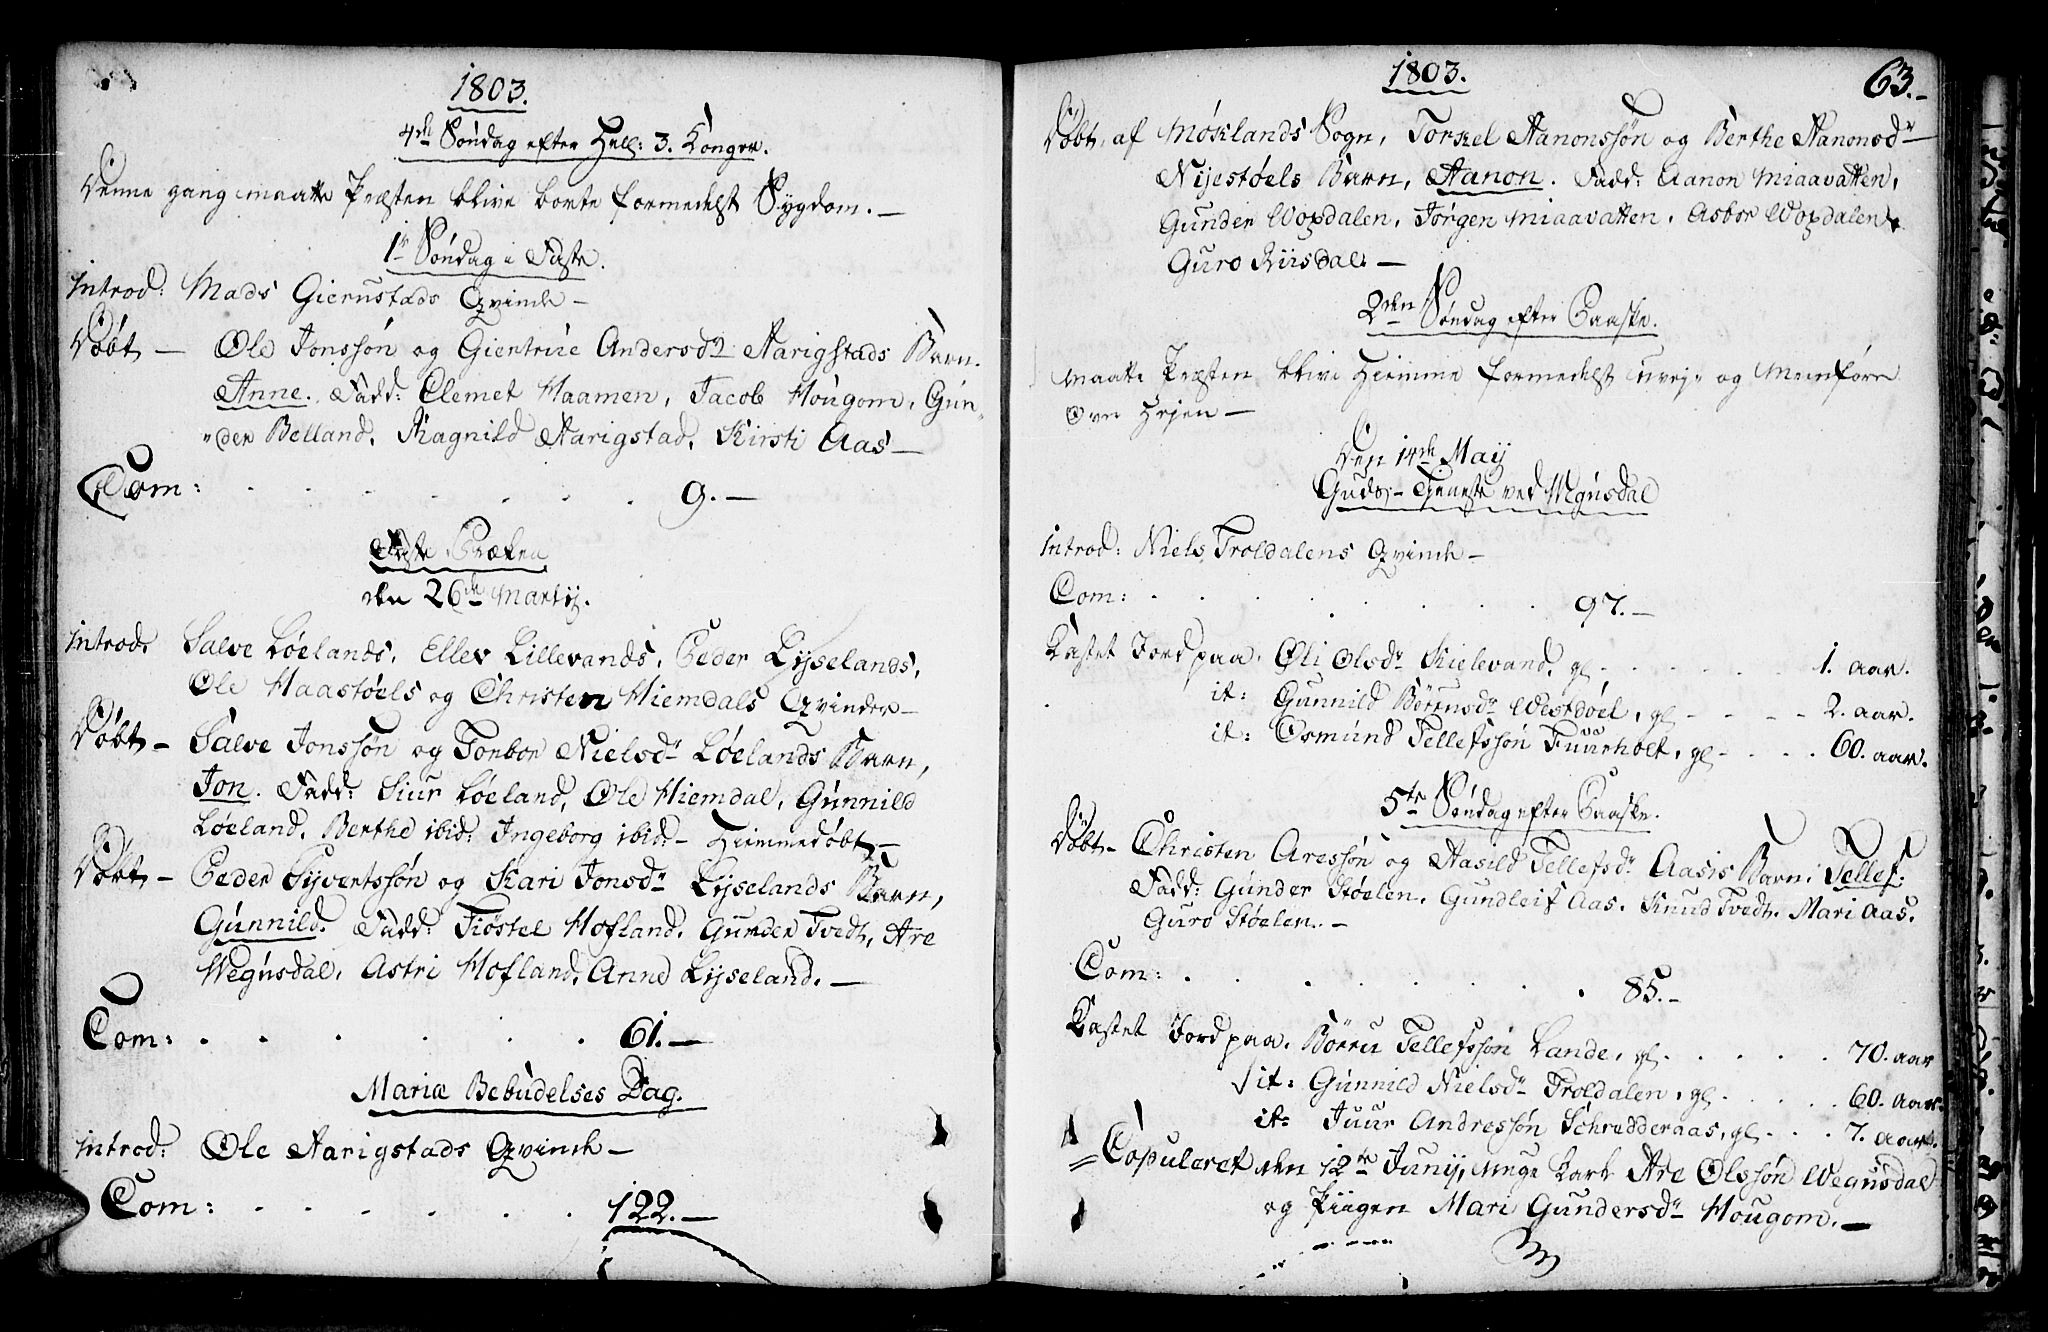 1803.
4de Søndag efter Hell: 3. Konger.
Denne gang maatte Præsten blive borte formedelst Sygdom. —
1te Søndag i Faste.
Introd: Mads Gierustads Qvinde —
Døbt — Ole Jonssøn og Giertrue Andersdr Aarigstads Barn.
Anne. Fadd: Clemet Haamen, Jacob Hougom, Gun-
"der Belland, Ragnild Aarigstad, Kirsti Aas —
Com: . . . . . . . 9. —
Faste Præken
den 26de Martij.
Introd: Salve Løelands, Ellev Lillevands, Peder Lyselands,
Ole Haastøels og Christen Hiemdals Qvinder —
Døbt — Salve Jonssøn og Tonbor Nielsdr Løelands Barn,
Jon. Fadd: Siur Løeland, Ole Hiemdal, Gunnild
Løeland, Berthe ibid: Ingeborg ibid: — Hiemmedøbt —
Døbt — Peder Syvertssøn og Kari Jonsdr Lyselands Barn,
Gunnild. Fadd: Tiøstel Hofland, Gunder Tvedt, Are
Wegusdal, Astri Hofland, Anne Lyseland. —
Com: . . . . . . 61. —
Mariæ Bebudelses Dag.
Introd: Ole Aarigstads Qvinde —
Com: . . . . . . 122. —
1803. 63. —
Døbt, af Møklands Sogn, Torkel Aanonssøn og Berthe Aanonsdr
Nijestøels Barn, Aanon. Fadd: Aanon Miaavatten,
Gunder Wopdalen, Jørgen Miaavatten, Asbor Wopdalen,
Guro Riisdal. —
2den Søndag efter Paaske.
Maatte Præsten blive Hiemme formedelst uveje og Meenføre
Over Hejen —
Den 14de Maij
Guds-Tieneste ved Wegusdal
Introd: Niels Troldalens Qvinde —
Com: . . . . . . 97. —
Kastet Jord paa, Oli Olsdr Kielevand, gl. . . . . 1. aar.
it: Gunnild Børrusdr Westdøel, gl — — — 2. aar.
it: Osmund Tellefssøn Fuurholt, gl — . . . 60. aar.
5te Søndag efter Paaske.
Døbt — Christen Aressøn og Aasild Tellefsdr Aasis Barn: Tellef:
Fadd: Gunder Støelen, Gundleif Aas, Knud Tvedt, Mari Aas,
Guro Støelen. —
Com: . . . . . . . 85. —
Kastet Jord paa, Børru Tellefssøn Lande, gl. . . . . 70. aar
it: Gunnild Nielsdr Troldalen, gl . . . . 60. aar.
it: Juur Andressøn Schredderaas, gl . . . 7. aar.
Copuleret den 12te Junij, unge Karl Are Olssøn Wegusdal
og Piigen Mari Gundersdr Hougom. —